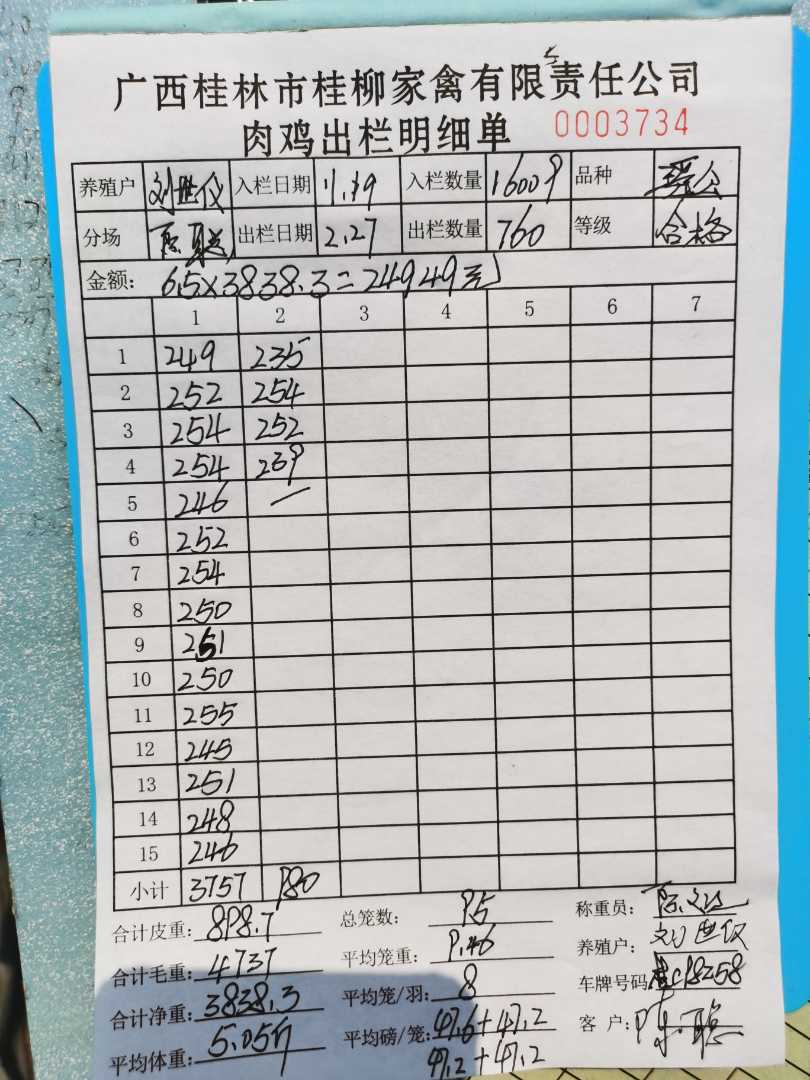 广西桂林市桂柳家禽有限责任公司
肉鸡出栏明细单 0003734
养殖户 刘世仪 入栏日期 11.19 入栏数量 1600羽 品种
分场 出栏日期 2.27 出栏数量 760 等级 合格
金额: 6.5×3838.3=24949元
1 2 3 4 5 6 7
1 249 235
2 252 254
3 254 252
4 254 239
5 246 —
6 252
7 254
8 250
9 251
10 250
11 255
12 245
13 251
14 248
15 246
小计 3757 980
合计皮重: 898.7 总笼数: 95 称重员:
合计毛重: 4737 平均笼重: 9.46 养殖户: 刘世仪
合计净重: 3838.3 平均笼/羽: 8 车牌号码
平均体重: 5.05斤 平均磅/笼: 47.6+47.2 客 户:
47.2+47.2